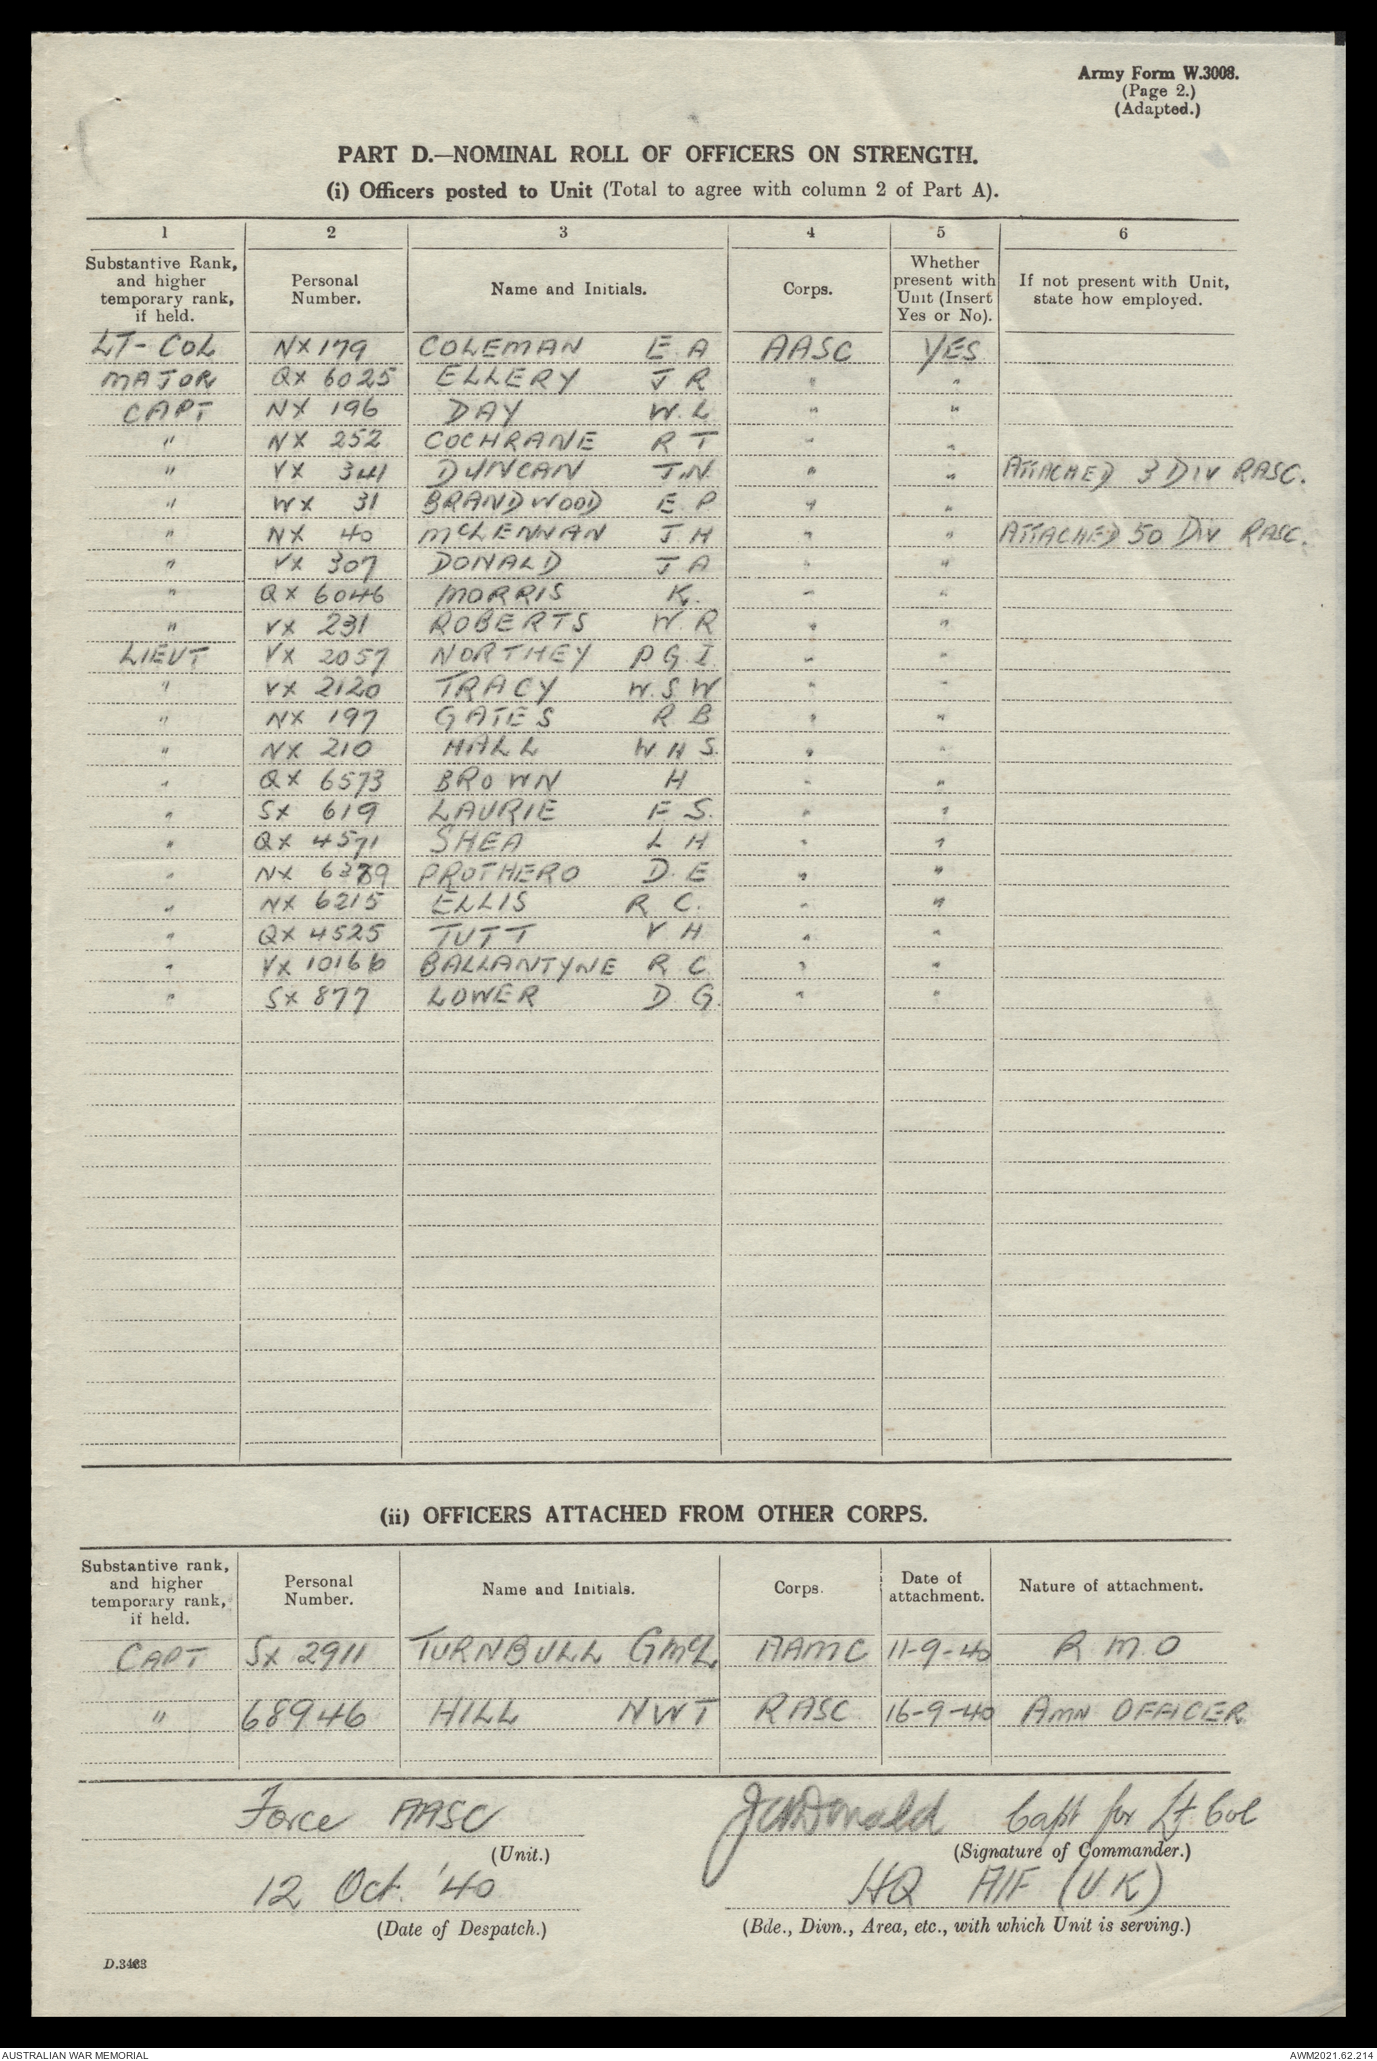 Army Form W.3008.
(Page 2.)
(Adapted.)
PART D.—NOMINAL ROLL OF OFFICERS ON STRENGTH.
(i) Officers posted to Unit (Total to agree with column 2 of Part A).
1 2 3 4 5 6
Substantive Rank, and higher temporary rank, if held. Personal Number. Name and Initials. Corps. Whether present with Unit (Insert Yes or No). If not present with Unit, state how employed.
LT-COL NX179 COLEMAN E A AASC YES
MAJOR QX 6025 ELLERY J R " "
CAPT NX 196 DAY W.L " "
" NX 252 COCHRANE R T " "
" VX 341 DUNCAN J.N. " " ATTACHED 3 DIV RASC.
" WX 31 BRANDWOOD E.P " "
" NX 40 McLENNAN J H " " ATTACHED 50 DIV RASC.
" VX 307 DONALD J A " "
" QX 6046 MORRIS K. " "
" VX 231 ROBERTS W.R " "
LIEUT VX 2057 NORTHEY P G.I. " "
" VX 2120 TRACY W.S W " "
" NX 197 GATES R B " "
" NX 210 HALL W H S. " "
" QX 6573 BROWN H " "
" SX 619 LAURIE F S. " "
" QX 4571 SHEA L H " "
" NX 6379 PROTHERO D. E " "
" NX 6215 ELLIS R C. " "
" QX 4525 TUTT V H " "
" VX 10166 BALLANTYNE R C. " "
" SX 877 LOWER D G. " "
(ii) OFFICERS ATTACHED FROM OTHER CORPS.
Substantive rank, and higher temporary rank, if held. Personal Number. Name and Initials. Corps. Date of attachment. Nature of attachment.
CAPT SX 2911 TURNBULL GMcL AAMC 11-9-40 R M O
" 68946 HILL NWT RASC 16-9-40 AMN OFFICER
Force AASC JADonald Capt for Lt Col
(Unit.) (Signature of Commander.)
12 Oct. '40 HQ AIF (UK)
(Date of Despatch.) (Bde., Divn., Area, etc., with which Unit is serving.)
D.3463
AUSTRALIAN WAR MEMORIAL AWM2021.62.214